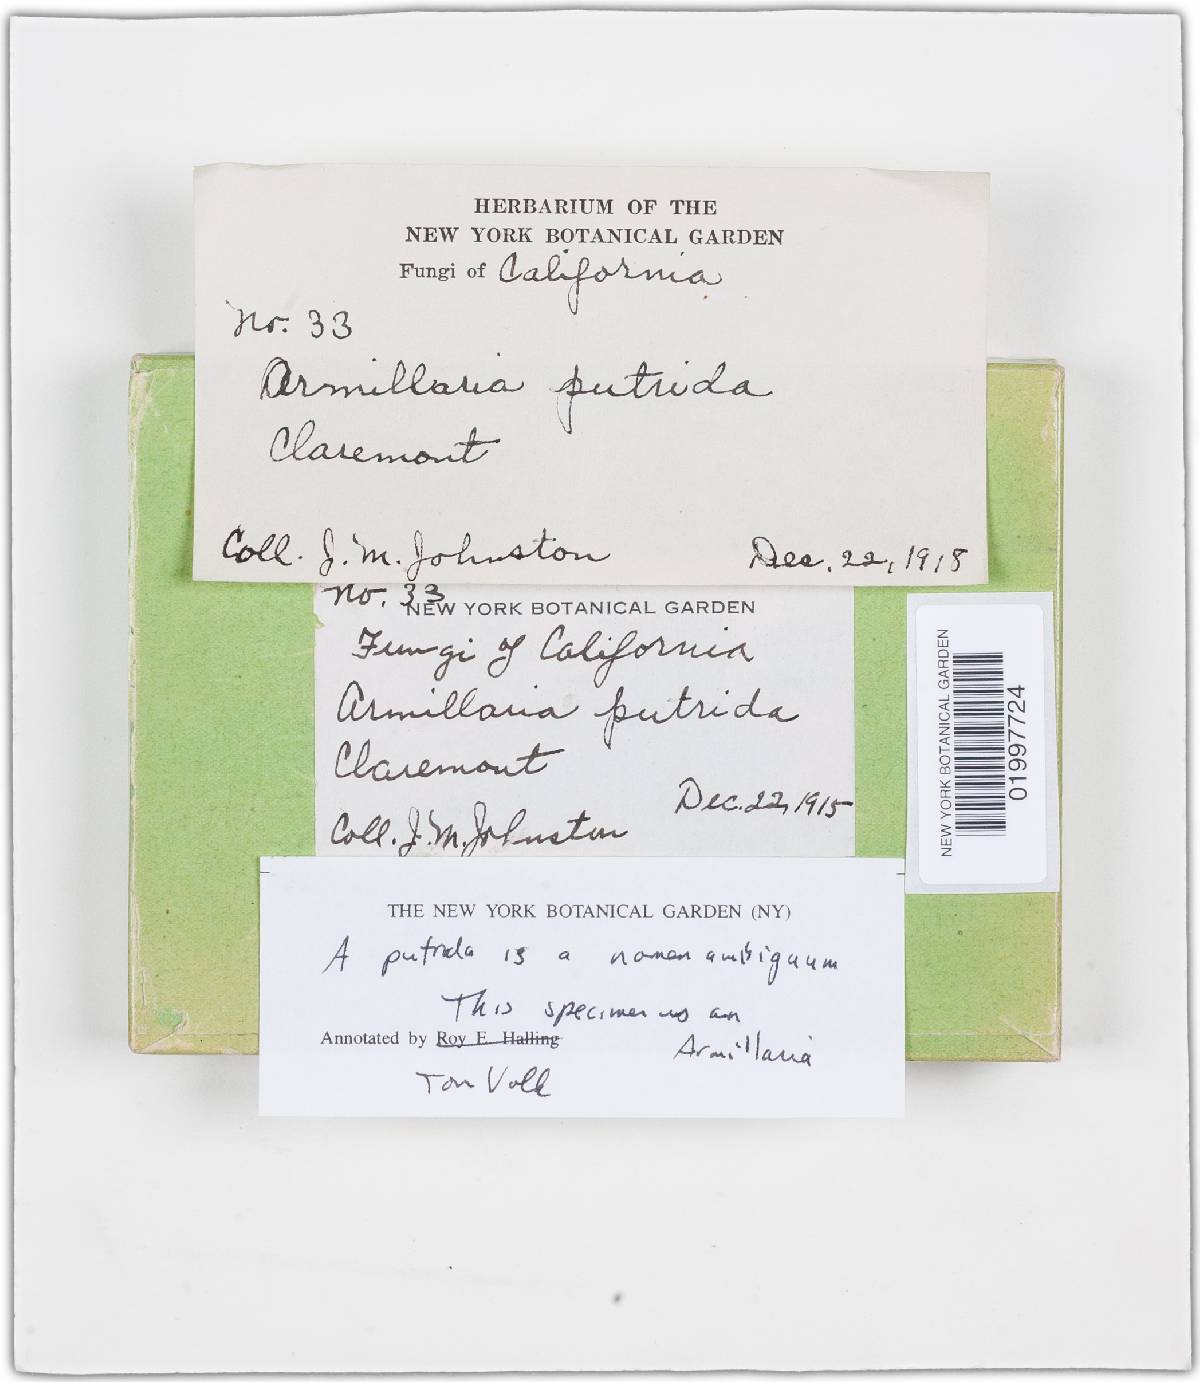 HERBARIUM OF THE
NEW YORK BOTANICAL GARDEN
Fungi of California
No. 33
Armillaria putrida
Claremont
Coll. J. M. Johnston Dec. 22, 1918
No. 33
NEW YORK BOTANICAL GARDEN
Fungi of California
Armillaria putrida
Claremont
Dec. 22, 1915
Coll. J. M. Johnston
NEW YORK BOTANICAL GARDEN
01997724
THE NEW YORK BOTANICAL GARDEN (NY)
A putrida is a nomen ambiguum
This specimen is an
Armillaria
Annotated by Roy E. Halling
Tom Volk